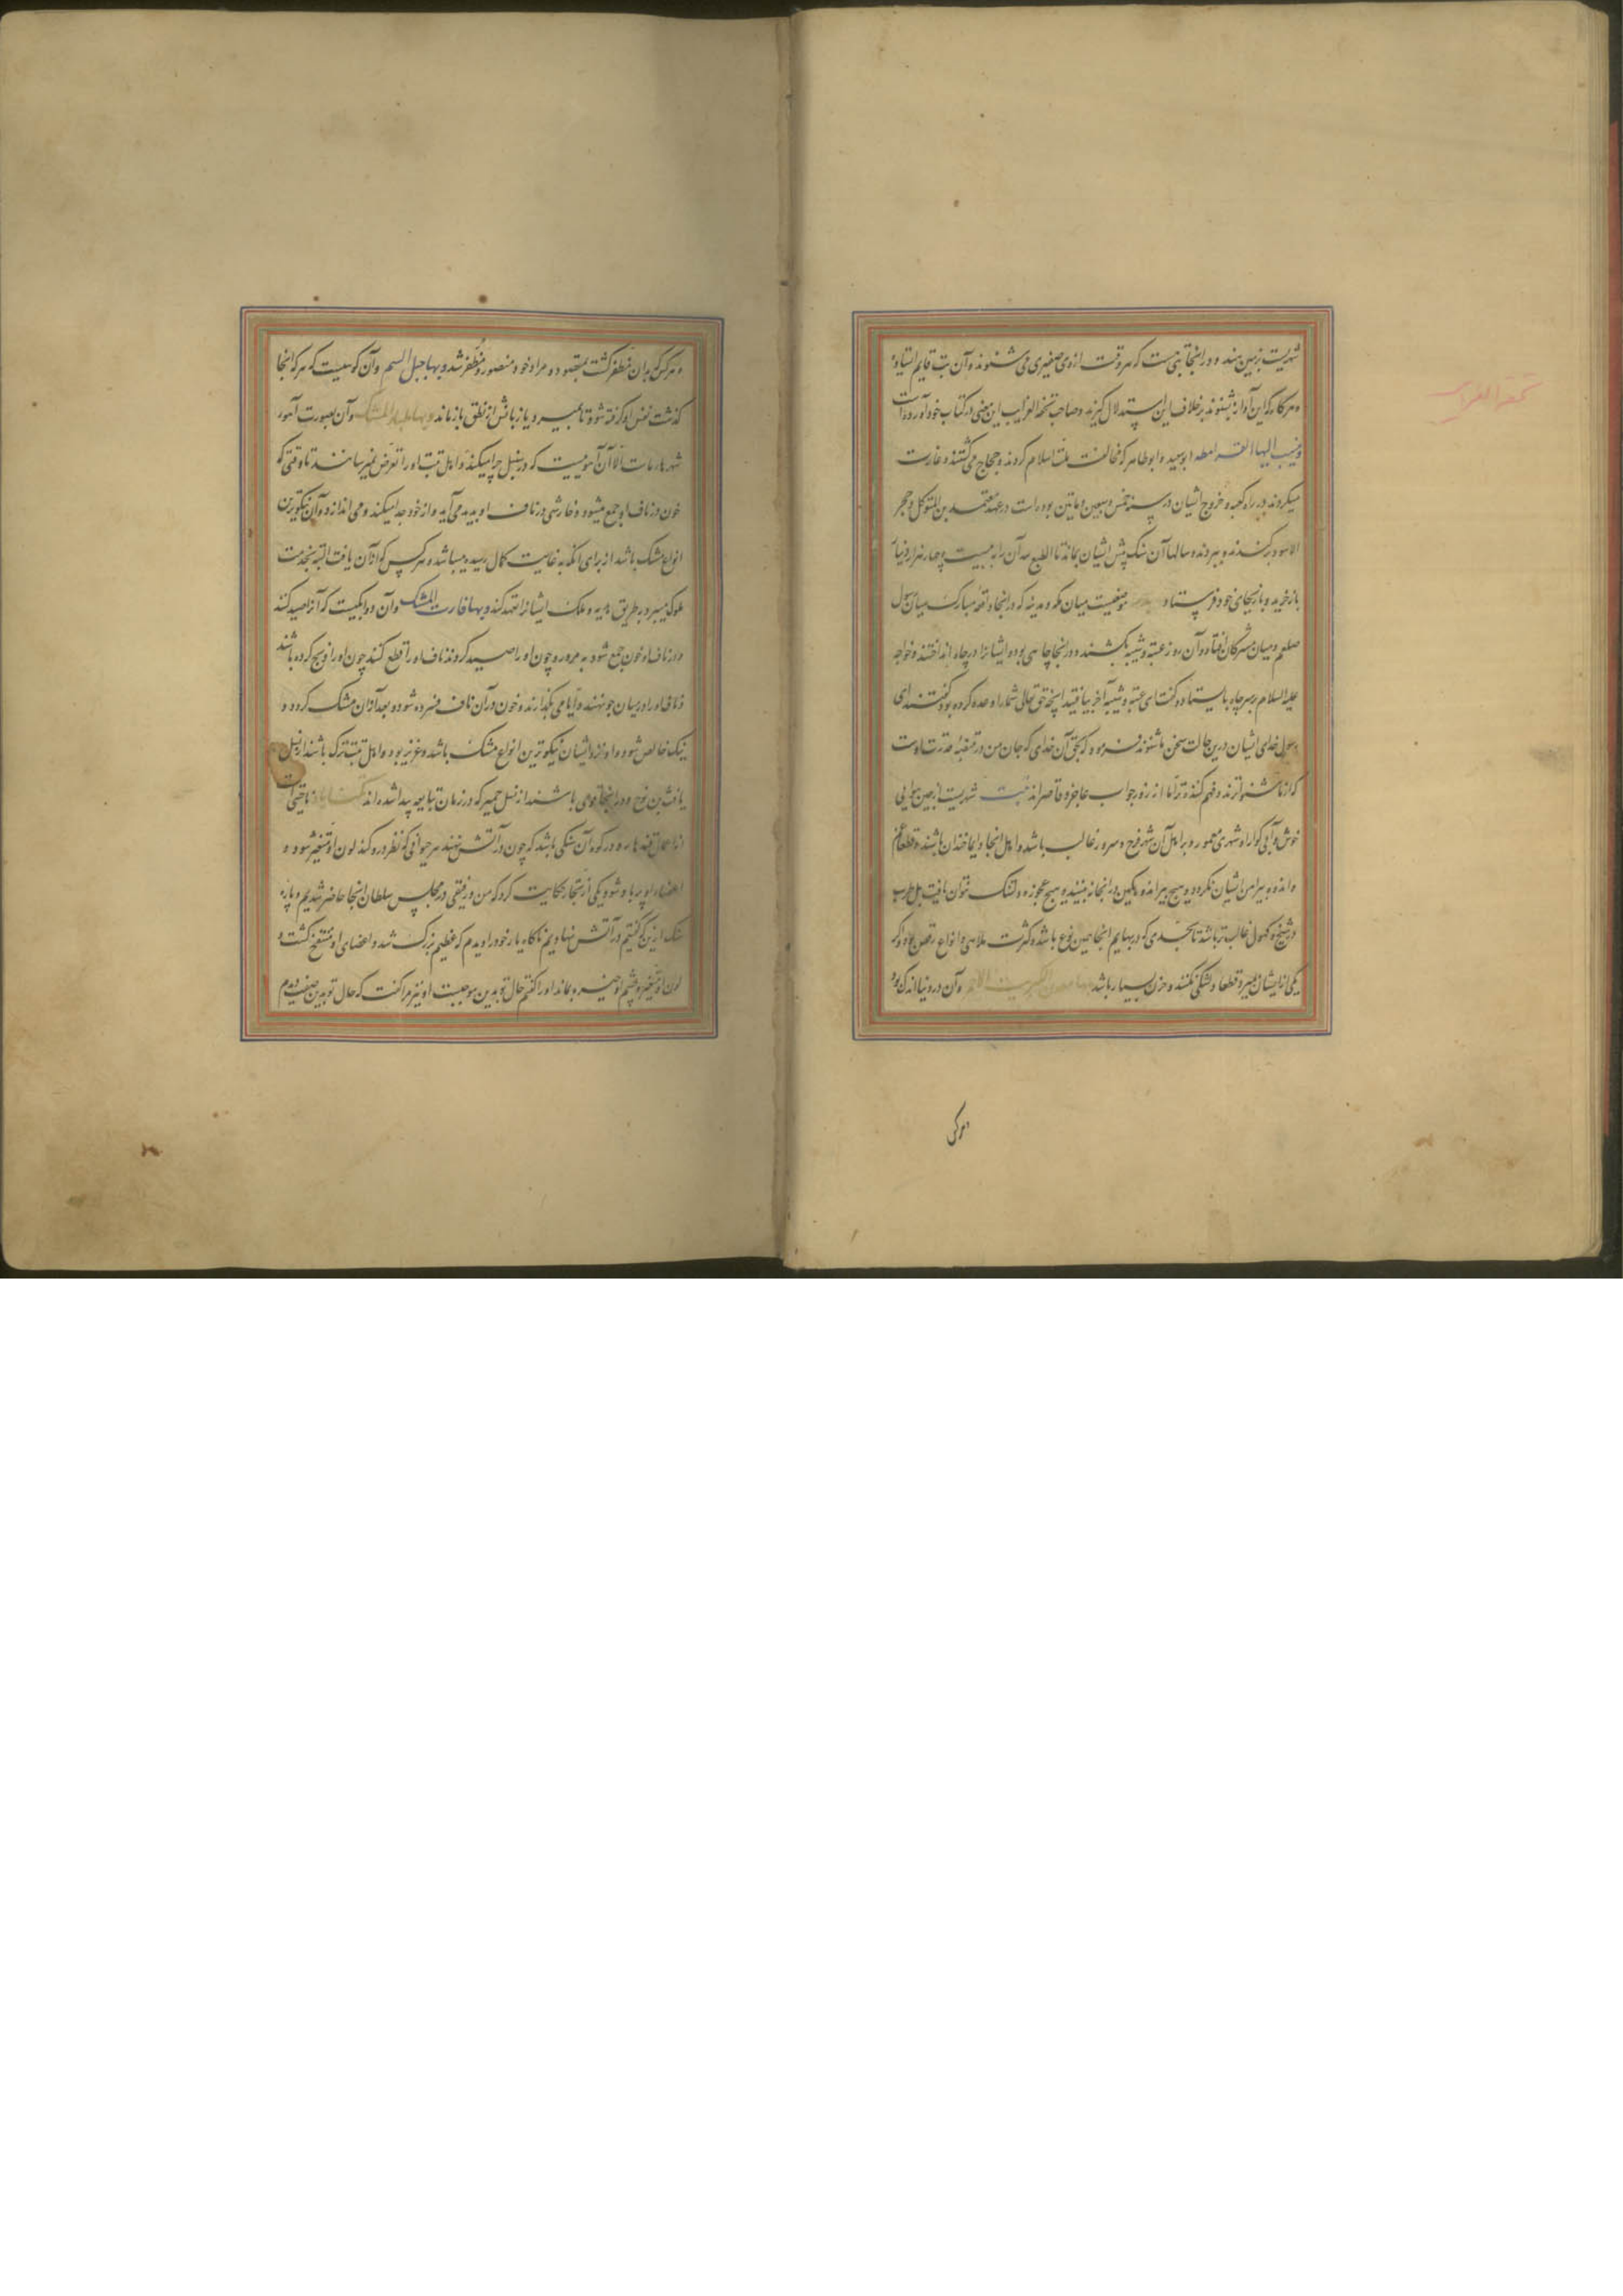 شهریست بزمین هند و در انجا بتی هست که هر وقت ازوی صفیری می شنوند و آن بت قایم ایستاده
و هرکاه که این آواز بشنوند بر خلاف این استدلال گیرند و صاحب تحفة الغرایب این معنی در کتاب خود آورده است
تحفة الغرایب
و ینسب الیها القرامطه ابو سعید و ابو طاهر که مخالفت ملت اسلام کردند و حجاج می کشتند و غارت
میکردند در راه کعبه و خروج ایشان در سنه خمس و سبعین و ماتین بوده است در عهد معتمد بن المتوکل و حجر
الاسود بر کندند و ببردند و سالها آن سنک پیش ایشان بماند تا المطیع لله آن را به بیست و چهار هزار دینار
باز خرید و باز بجای خود فرستاد موضعیست میان مکه و مدینه که در انجا واقعه مبارک میان رسول
صلعم و میان مشرکان افتاد و آن روز عتبه و شیبه بکشتند و در انجا چاهی بوده ایشانرا در چاه انداختند و خواجه
علیه السلام بر سر چاه بایستاد و کفت ای عتبه و شیبه آخر یافتید انچه حق تعالی شما را وعده کرده بود کفتند ای
رسول خدای ایشان درین حالت سخن ما شنوند فرمود که بحق آن خدای که جان من در قبضه قدرت اوست
که از ما شنواترند و فهم کننده تر اما از زور جواب عاجز و قاصر اند تبت شهریست بزمین هوایی
خوش و آبی کوارا و شهری معمور و بر اهل آن شهر فرح و سرور غالب باشد و اهل انجا دایما خندان باشند و قطعا غم
و اندوه پیرامن ایشان نکردد و هیچ پیر اندوهگین در انجا نبینند و هیچ عجوزه دلتنک نتوان یافت بل طرب
در شیخ و کهول غالب تر باشد تا بحدی که در بهایم انجا همین نوع باشد و کثرت ملاهی و انواع رقص بود و اکر
یکی از ایشان بمیرد قطعا دلتنکی نکنند و حزن بسیار باشد بها معدن الکبریت الاحمر و آن در دنیا اندک بود
و هرکس که بدان مظفر کشت بمقصود و مراد خود منصور و مظفر شد و بها جبل السم و آن کوهیست که هر که انجا
کذشت نفس او کرفته شود تا بمیرد و یا زبانش از نطق باز ماند و بها ظباء المسک و آن بصورت آهوی
شهرها ماست الا آن آهوییست که در سنبل چرا میکند و اهل تبت او را تعرض نمیرسانند تا وقتی که
خون در ناف او جمع میشود و خارشی در ناف او پدید می آید و از خود جدا میکند و می اندازد و آن نیکوترین
انواع مشک باشد از برای انکه به غایت کمال رسیده میباشد و هرکس که از آن یافت البته بخدمت
ملوک میبرد بطریق هدیه و ملک ایشانرا تعهد کند و بها فارت المشک و آن دوابکیست که آنرا صید کنند
و در ناف او خون جمع شود به مرور و چون او را صید کردند ناف او را قطع کنند چون او را ذبح کرده باشند
و ناف او را در میان جو نهند و ایامی بگذارند و خون در آن ناف فسرده شود و بعد از آن مشک کردد و
نیک خالص شود و او نزد ایشان نیکوترین انواع مشک باشد و عزیز بود و اهل تبت ترک باشند از نسل
یافث بن نوح و در انجا قومی باشند از نسل حمیر که در زمان تبابعه پیدا شده اند ناحیتی است
از اعمال قندهار و در کوه آن سنکی باشد که چون در آتش نهند هر حیوانی که نظر در و کند لون او متغیر شود و
اعضاء او پر باد شود یکی از تجار حکایت کرد که من و رفیقی در مجلس سلطان انجا حاضر شدیم و پاره
سنک ازین که کفتیم در آتش نهاد دیدیم ناکاه یار خود را دیدم که عظیم بزرک شد و اعضای او منتفخ کشت و
لون او متغیر و چشم او خیره بماند او را کفتم حال تو بدین موجبست او نیز مرا کفت که حال تو بدین صفت دیدم
و هرکس